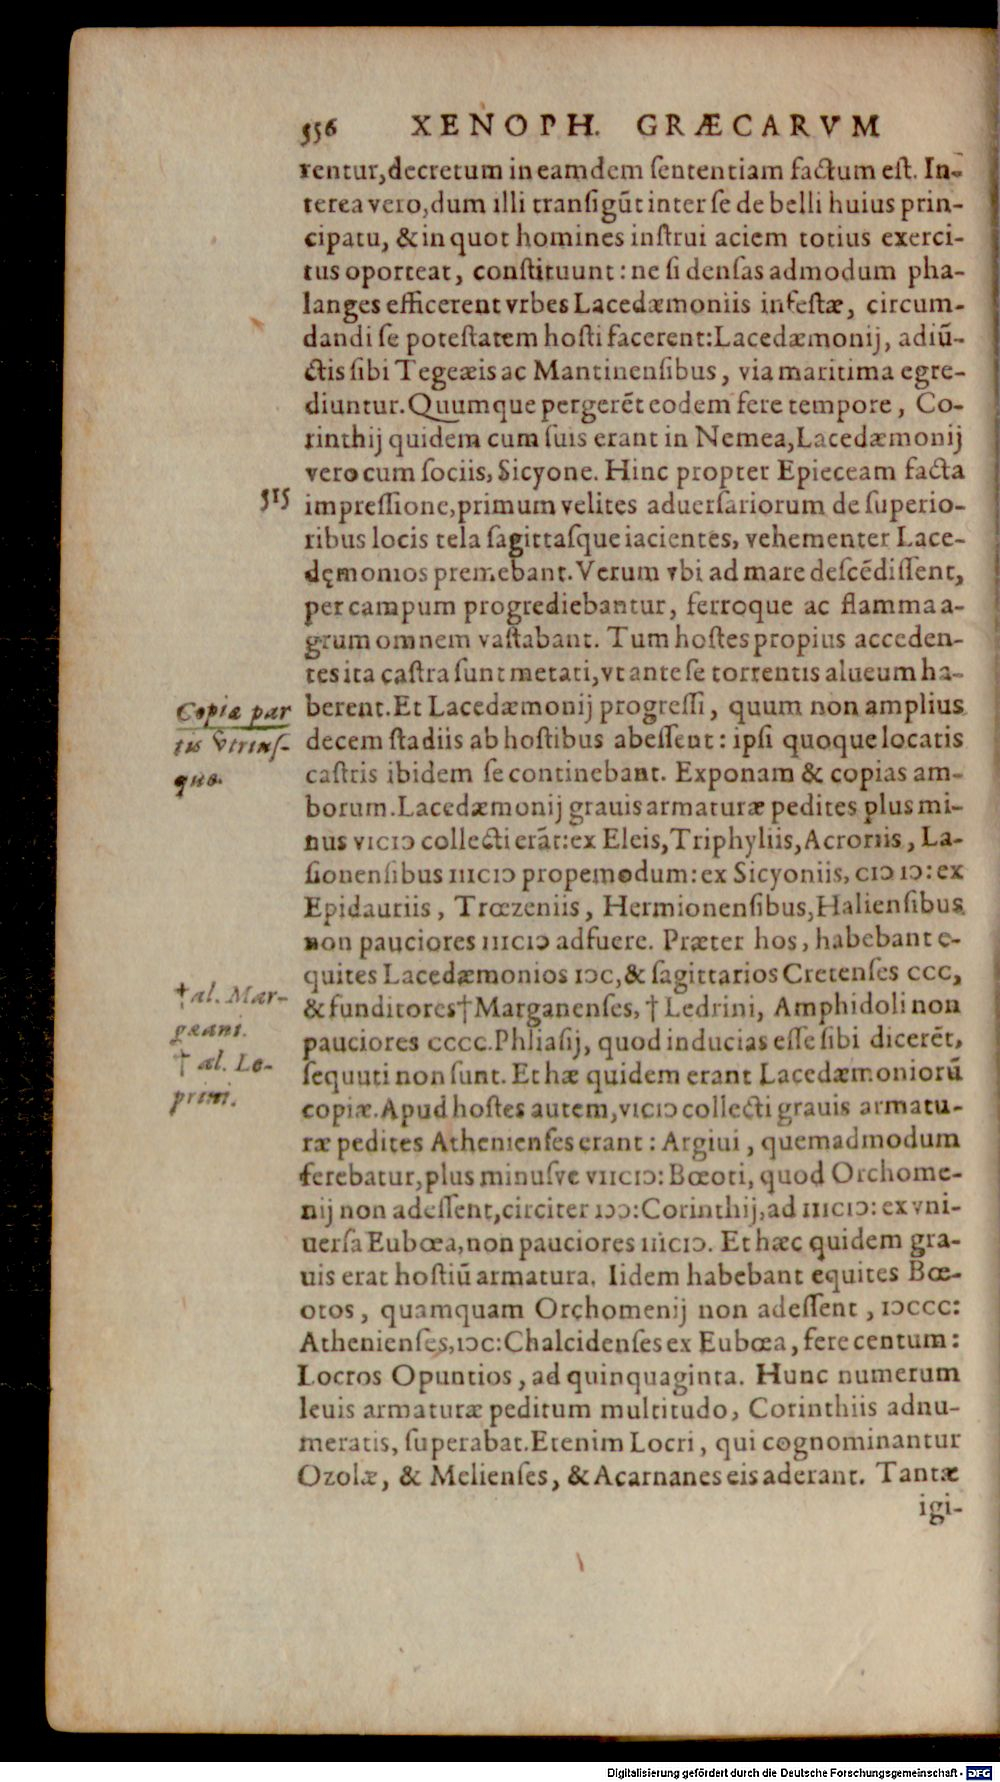 556 XENOPH. GRÆCARVM
rentur, decretum in eamdem ſententiam factum eſt. In-
terea vero, dum illi tranſigūt inter ſe de belli huius prin-
cipatu, & in quot homines inſtrui aciem totius exerci-
tus oporteat, conſtituunt: ne ſi denſas admodum pha-
langes efficerent vrbes Lacedæmoniis infeſtæ, circum-
dandi ſe poteſtatem hoſti facerent: Lacedæmonij, adiū-
ctis ſibi Tegeæis ac Mantinenſibus, via maritima egre-
diuntur. Quumque pergerēt eodem fere tempore, Co-
rinthij quidem cum ſuis erant in Nemea, Lacedæmonij
vero cum ſociis, Sicyone. Hinc propter Epieceam facta
515
impreſſione, primum velites aduerſariorum de ſuperio-
ribus locis tela ſagittaſque iacientes, vehementer Lace-
dęmonios premebant. Verum vbi ad mare deſcēdiſſent,
per campum progrediebantur, ferroque ac flamma a-
grum omnem vaſtabant. Tum hoſtes propius acceden-
tes ita caſtra ſunt metati, vt ante ſe torrentis alueum ha-
Copiæ par
tis vtrinſ-
que.
berent. Et Lacedæmonij progreſſi, quum non amplius
decem ſtadiis ab hoſtibus abeſſent: ipſi quoque locatis
caſtris ibidem ſe continebant. Exponam & copias am-
borum. Lacedæmonij grauis armaturæ pedites plus mi-
nus vıcıↄ collecti erāt: ex Eleis, Triphyliis, Acroriis, La-
ſionenſibus ıııcıↄ propemodum: ex Sicyoniis, cıↄ ıↄ: ex
Epidauriis, Trœzeniis, Hermionenſibus, Halienſibus
non pauciores ıııcıↄ adfuere. Præter hos, habebant e-
quites Lacedæmonios ıↄc, & ſagittarios Cretenſes ccc,
† al. Mar-
geani.
† al. Le-
prini.
& funditores † Marganenſes, † Ledrini, Amphidoli non
pauciores cccc. Phliaſij, quod inducias eſſe ſibi dicerēt,
ſequuti non ſunt. Et hæ quidem erant Lacedæmoniorū
copiæ. Apud hoſtes autem, vıcıↄ collecti grauis armatu-
ræ pedites Athenienſes erant: Argiui, quemadmodum
ferebatur, plus minuſve vııcıↄ: Bœoti, quod Orchome-
nij non adeſſent, circiter ıↄↄ: Corinthij, ad ıııcıↄ: ex vni-
uerſa Eubœa, non pauciores ıııcıↄ. Et hæc quidem gra-
uis erat hoſtiū armatura. Iidem habebant equites Bœ-
otos, quamquam Orchomenij non adeſſent, ıↄccc:
Athenienſes, ıↄc: Chalcidenſes ex Eubœa, fere centum:
Locros Opuntios, ad quinquaginta. Hunc numerum
leuis armaturæ peditum multitudo, Corinthiis adnu-
meratis, ſuperabat. Etenim Locri, qui cognominantur
Ozolæ, & Melienſes, & Acarnanes eis aderant. Tantæ
igi-
Digitalisierung gefördert durch die Deutsche Forschungsgemeinschaft - DFG